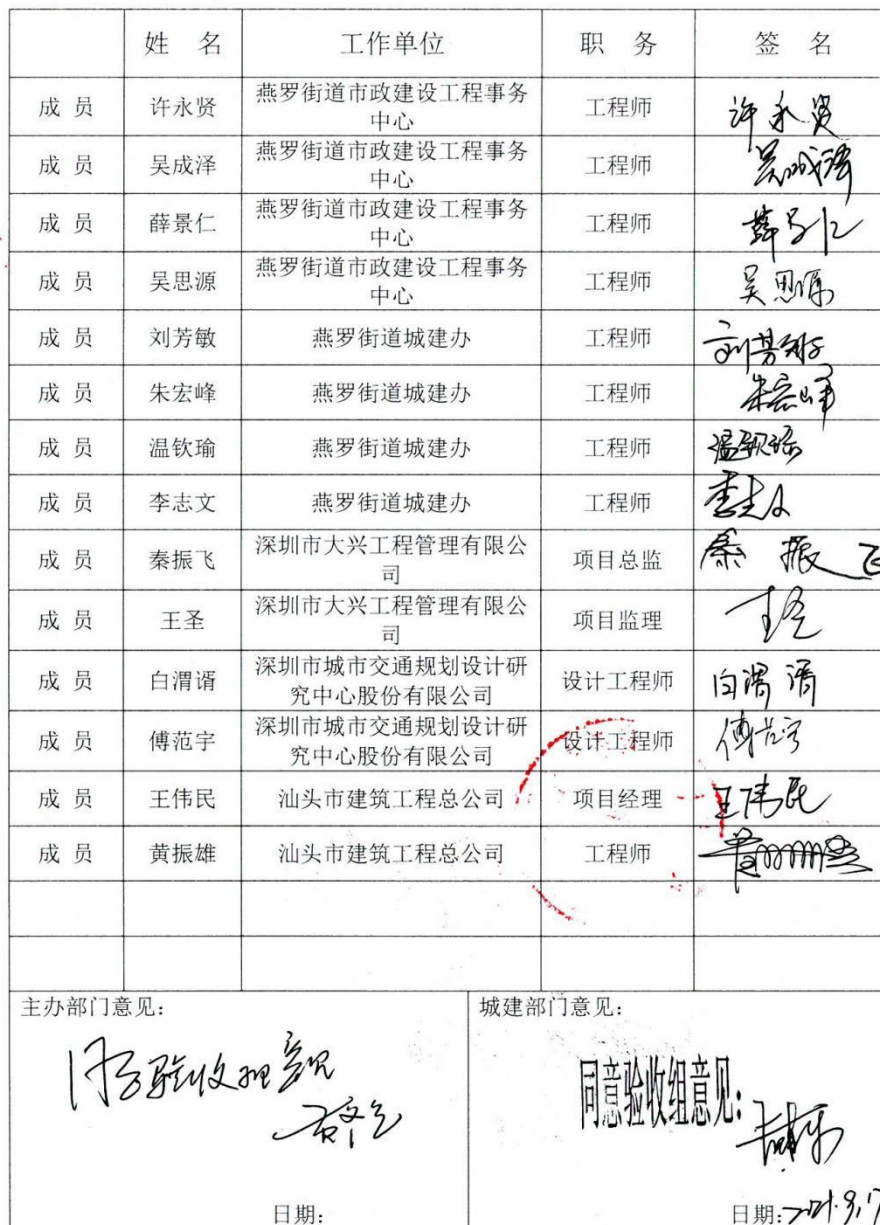 姓 名 工作单位 职 务 签 名
成 员 许永贤 燕罗街道市政建设工程事务 工程师 许永贤
中心
成 员 吴成泽 燕罗街道市政建设工程事务 工程师 吴成泽
中心
成 员 薛景仁 燕罗街道市政建设工程事务 工程师
中心
成 员 吴思源 燕罗街道市政建设工程事务 工程师 吴思源
中心
成 员 刘芳敏 燕罗街道城建办 工程师 刘芳敏
成 员 朱宏峰 燕罗街道城建办 工程师 朱宏峰
成 员 温钦瑜 燕罗街道城建办 工程师 温钦瑜
成 员 李志文 燕罗街道城建办 工程师 李志文
成 员 秦振飞 深圳市大兴工程管理有限公 项目总监 秦振飞
司
成 员 王圣 深圳市大兴工程管理有限公 项目监理 王圣
司
成 员 白渭谞 深圳市城市交通规划设计研 设计工程师 白渭谞
究中心股份有限公司
成 员 傅范宇 深圳市城市交通规划设计研 设计工程师 傅范宇
究中心股份有限公司
成 员 王伟民 汕头市建筑工程总公司 项目经理 王伟民
成 员 黄振雄 汕头市建筑工程总公司 工程师
主办部门意见： 城建部门意见：
同意验收组意见
同意验收组意见：
日期： 日期：2021.9.17